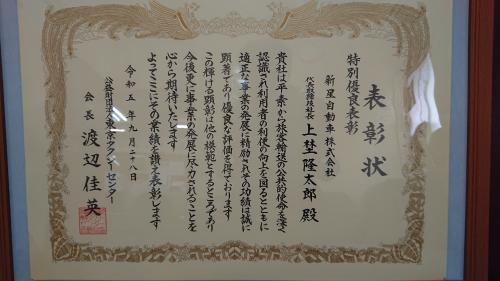 表彰状
特別優良表彰
新星自動車株式会社
代表取締役社長 上埜隆太郎 殿
貴社は平素から旅客輸送の公共的使命を深く
認識され利用者の利便の向上を図るとともに
適正な事業の発展に精励されその功績は誠に
顕著であり優良な評価を得ております
この輝ける顕彰は他の模範とするところであり
今後更に事業の発展に尽力されることを
心から期待いたします
よってここにその業績を讃え表彰します
令和五年九月二十八日
公益財団法人東京タクシーセンター
会長 渡辺佳英